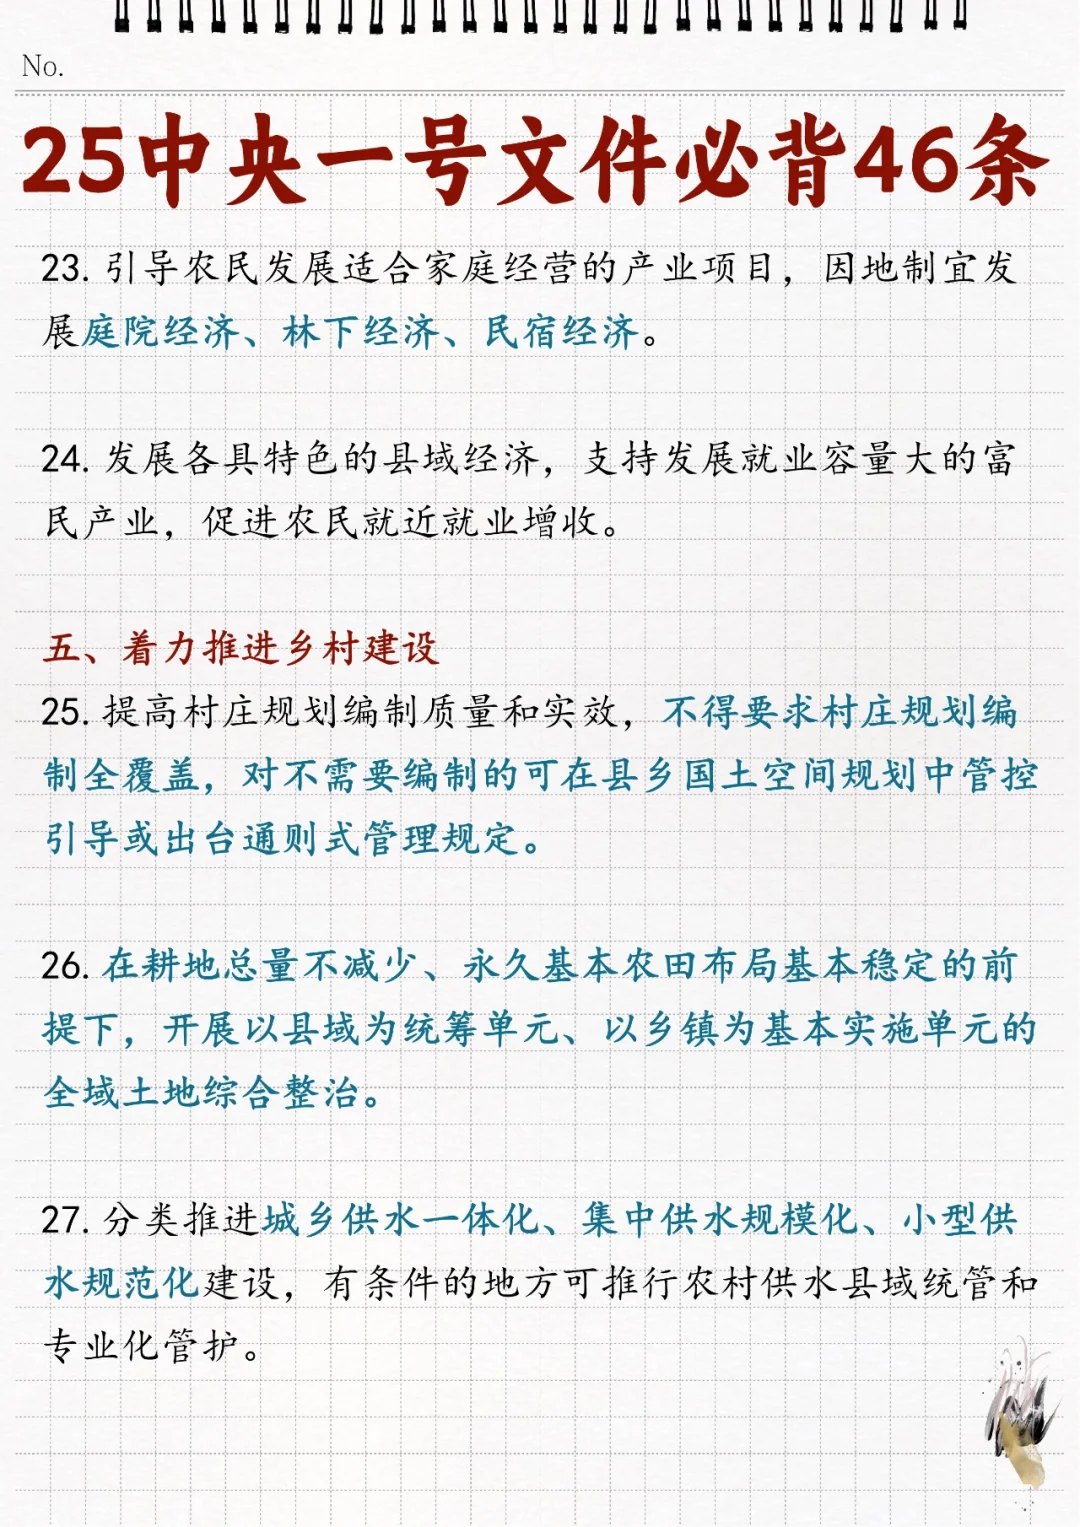 No.
25中央一号文件必背46条
23. 引导农民发展适合家庭经营的产业项目，因地制宜发
展庭院经济、林下经济、民宿经济。
24. 发展各具特色的县域经济，支持发展就业容量大的富
民产业，促进农民就近就业增收。
五、着力推进乡村建设
25. 提高村庄规划编制质量和实效，不得要求村庄规划编
制全覆盖，对不需要编制的可在县乡国土空间规划中管控
引导或出台通则式管理规定。
26. 在耕地总量不减少、永久基本农田布局基本稳定的前
提下，开展以县域为统筹单元、以乡镇为基本实施单元的
全域土地综合整治。
27. 分类推进城乡供水一体化、集中供水规模化、小型供
水规范化建设，有条件的地方可推行农村供水县域统管和
专业化管护。